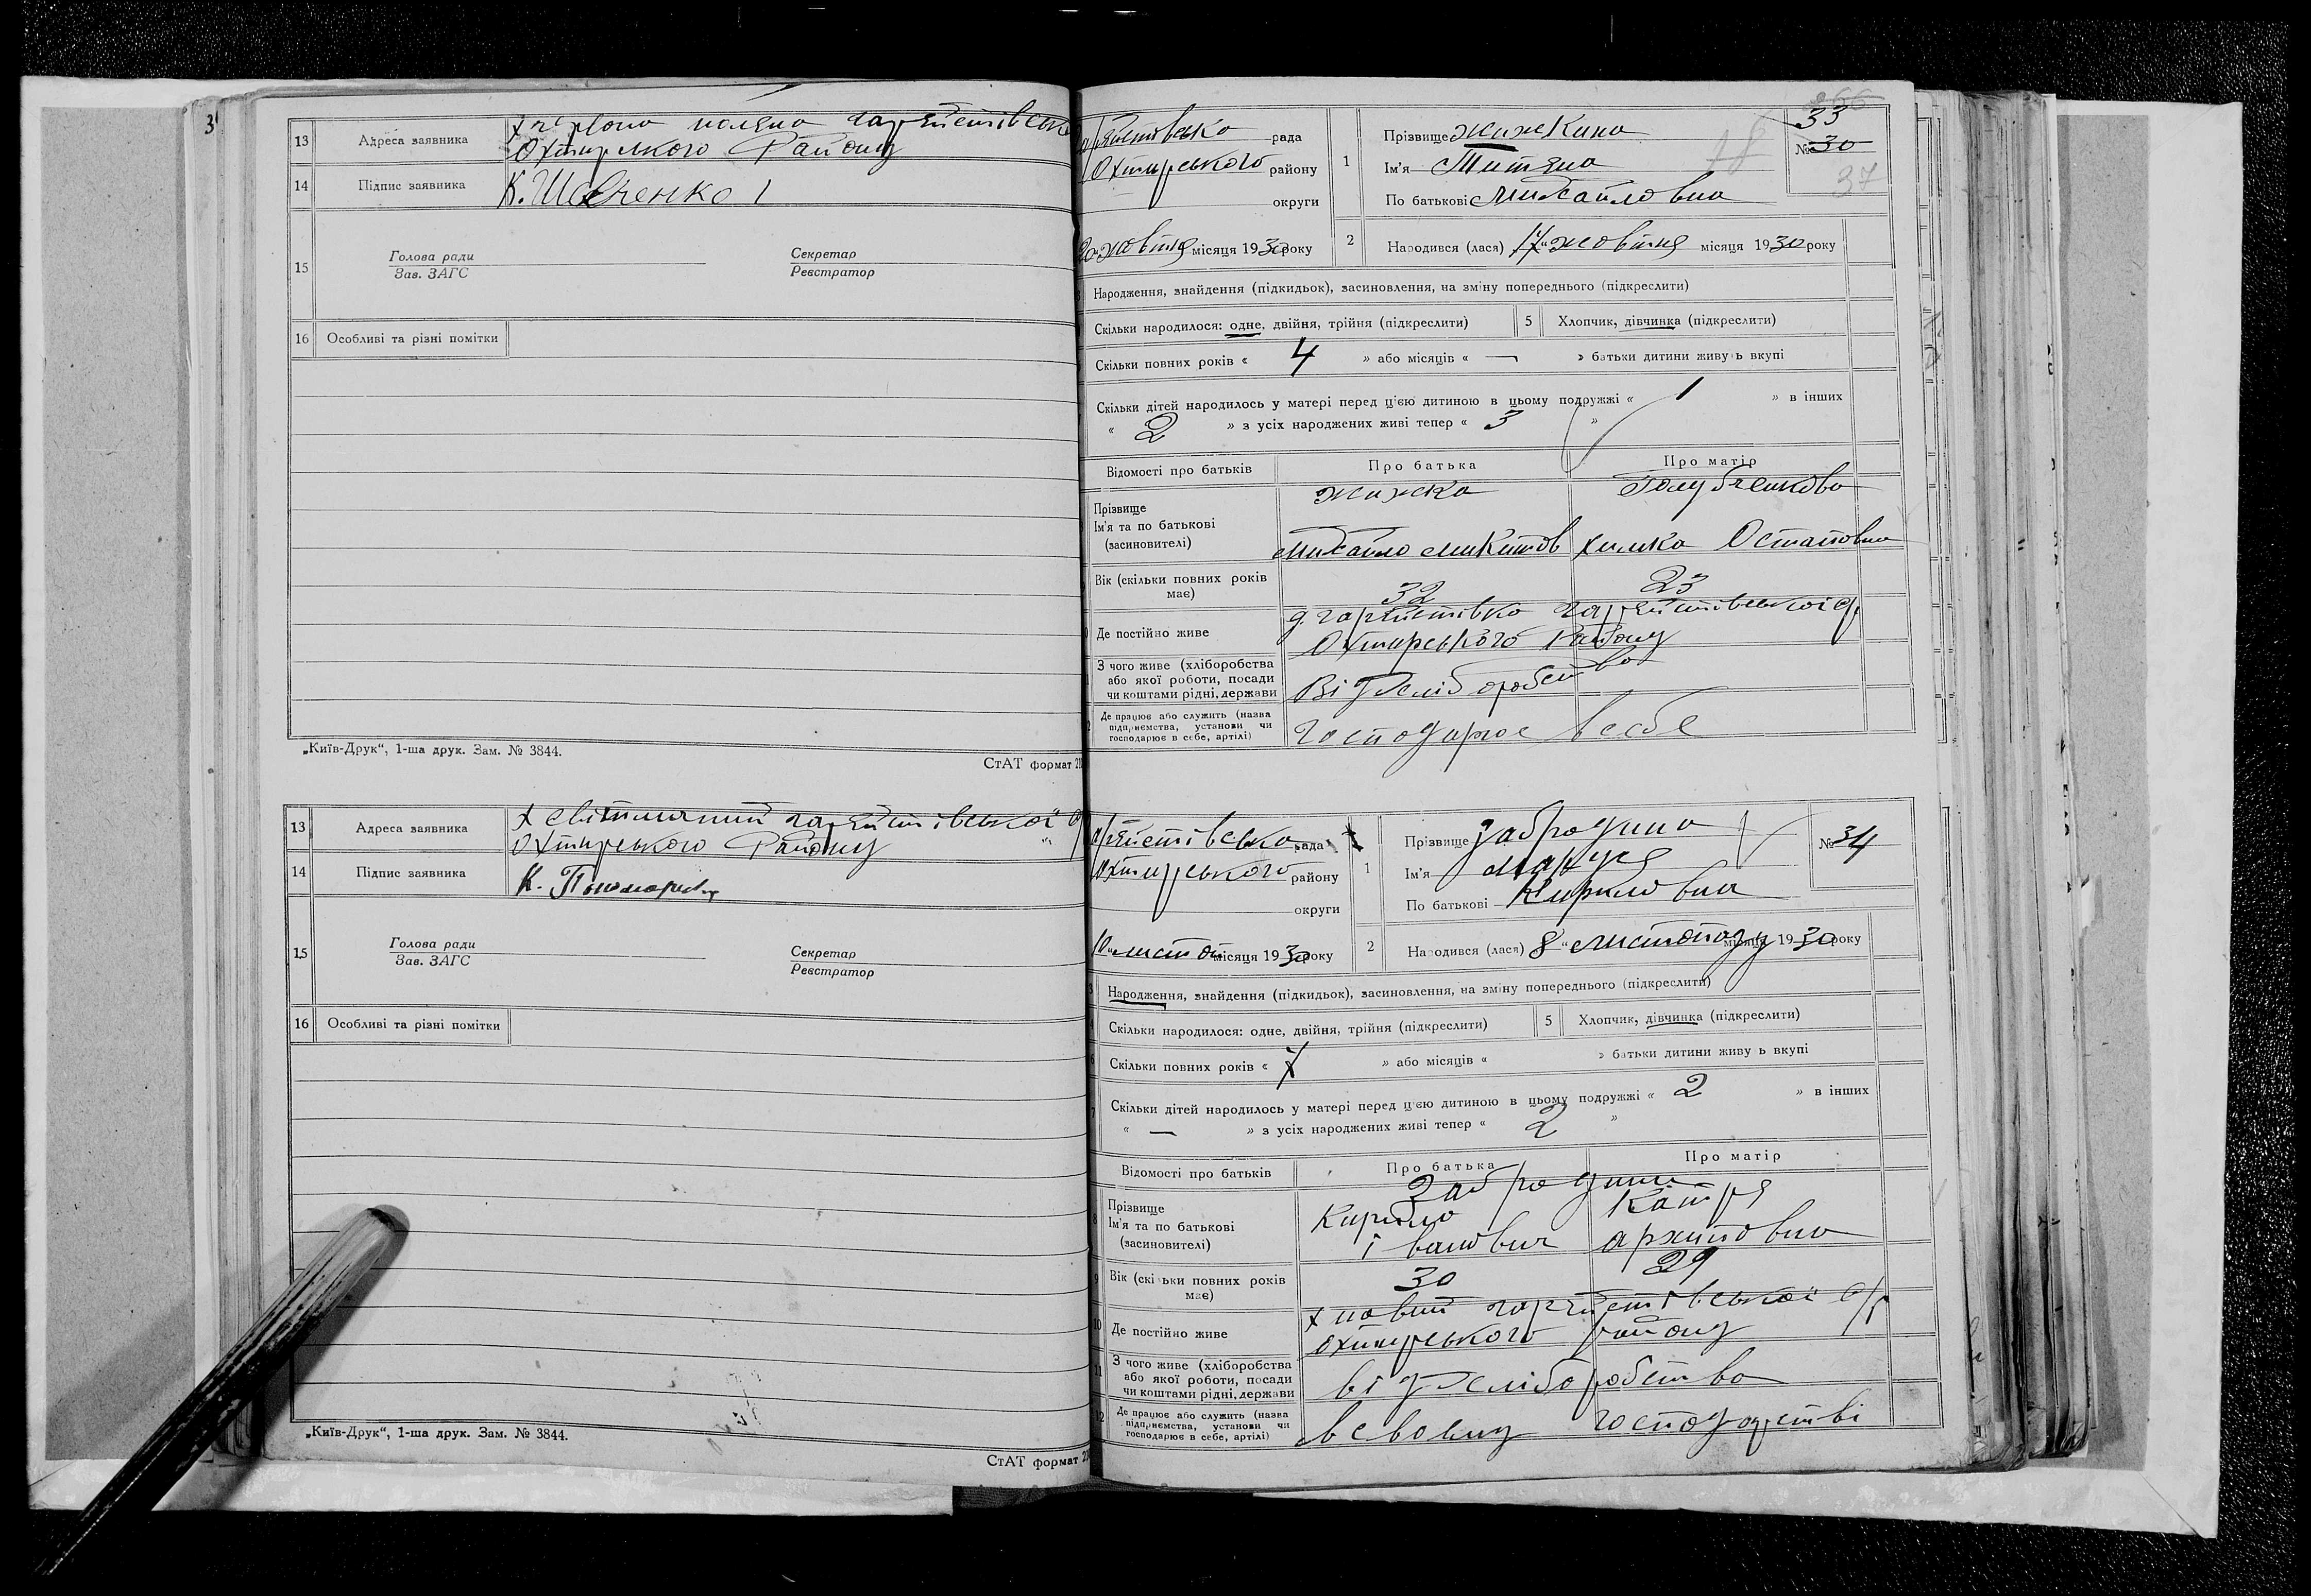 3
13 Адреса заявника
Охтирського Району
14 Підпис заявника К. Шевченко
15 Голова ради Секретар
Зав. ЗАГС Реєстратор
16 Особливі та різні помітки
„Київ-Друк“, 1-ша друк. Зам. № 3844.
СтАТ формат
13 Адреса заявника
Охтирського Району
14 Підпис заявника К.
15 Голова ради Секретар
Зав. ЗАГС Реєстратор
16 Особливі та різні помітки
„Київ-Друк“, 1-ша друк. Зам. № 3844.
СтАТ формат
рада
Охтирського району
округи
жовтня місяця 1930 року
1 Прізвище
Ім'я Титяна
По батькові Михайловна
33
№ 30
37
2 Народився (лася) 17 „ жовтня місяця 1930 року
Народження, знайдення (підкидьок), засиновлення, на зміну попереднього (підкреслити)
Скільки народилося: одне, двійня, трійня (підкреслити) 5 Хлопчик, дівчинка (підкреслити)
Скільки повних років « 4 » або місяців « — » батьки дитини живуть вкупі
Скільки дітей народилось у матері перед ц'єю дитиною в цьому подружжі « 1 » в інших
« 2 » з усіх народжених живі тепер « 3 »
Відомості про батьків Про батька Про матір
Прізвище
Ім'я та по батькові
(засиновителі) Михайло Микитов химка Остаповна
Вік (скільки повних років
має) 32 23
Де постійно живе
Охтирського Району
З чого живе (хліборобства
або якої роботи, посади
чи коштами рідні, держави Від хліборобства
Де працює або служить (назва
підприємства, установи чи
господарює в себе, артілі) господарює в себе
рада
Охтирського району
округи
10 „ листоп місяця 1930 року
1 Прізвище Забродина
Ім'я Маруся
По батькові Кириловна
№ 34
2 Народився (лася) 8 „ листопаду місяця 1930 року
Народження, знайдення (підкидьок), засиновлення, на зміну попереднього (підкреслити)
Скільки народилося: одне, двійня, трійня (підкреслити) 5 Хлопчик, дівчинка (підкреслити)
Скільки повних років « 7 » або місяців « » батьки дитини живу ь вкупі
Скільки дітей народилось у матері перед ц'єю дитиною в цьому подружжі « 2 » в інших
« — » з усіх народжених живі тепер « 2 »
Відомості про батьків Про батька Про матір
Прізвище
Ім'я та по батькові Кирило Катря
(засиновителі) Іванович архиповна
9 Вік (скі ьки повних років
має) 30 29
10 Де постійно живе
охтирського району
11 З чого живе (хліборобства
або якої роботи, посади
чи коштами рідні, держави від хліборобства
12 Де працює або служить (назва
підприємства, установи чи
господарює в себе, артілі) господарстві